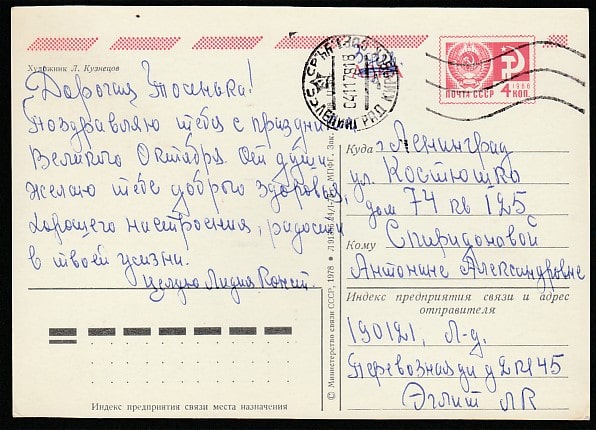 Художник Л. Кузнецов
ПОЧТА СССР
4 КОП.
1966
АВИА
ЛЕНИНГРАД
Дорогая Тосенька!
Поздравляю тебя с праздни
Великого Октября. От души
желаю тебе доброго здоровья,
хорошего настроения, радости
в твоей жизни.
Целую Лидия Конст.
Куда г. Ленинград
ул. Костюшко
дом 74 кв 125
Кому Спиридоновой
Антонине Александровне
Индекс предприятия связи и адрес
отправителя
190121, Л-д.
Перевозная д 2 кв 45
Эглит ЛК
Индекс предприятия связи места назначения
© Министерство связи СССР, 1978